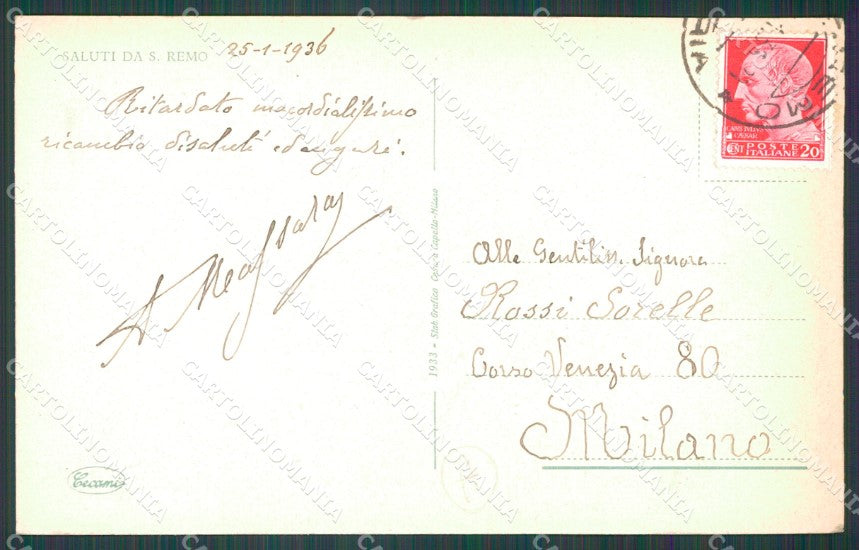 SALUTI DA S. REMO 25-1-1936
Ritardato ma cordialissimo
ricambio di saluti ed auguri.
A Massara
Alle Gentiliss. Signore
Rossi Sorelle
Corso Venezia 80
Milano
1933 - Stab. Grafico Cesare Capello - Milano
Cecami
CAIVS IVLIVS
CAESAR
CENT POSTE ITALIANE 20
CARTOLINOMANIA